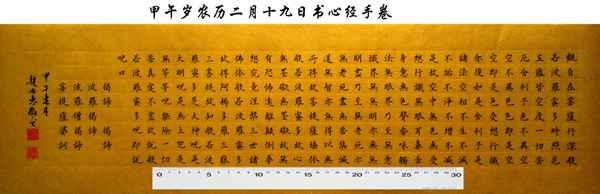 甲午岁农历二月十九日书心经手卷
觀自在菩薩行深般
若波羅蜜多時照見
五蘊皆空度一切苦
厄舍利子色不異空
空不異色色即是空
空即是色受想行識
亦復如是舍利子是
諸法空相不生不滅
不垢不淨不增不減
是故空中無色無受
想行識無眼耳鼻舌
身意無色聲香味觸
法無眼界乃至無意
識界無無明亦無無
明盡乃至無老死亦
無老死盡無苦集滅
道無智亦無得以無
所得故菩提薩埵依
般若波羅蜜多故心
無罣礙無罣礙故無
有恐怖遠離顛倒夢
想究竟涅槃三世諸
佛依般若波羅蜜多
故得阿耨多羅三藐
三菩提故知般若波
羅蜜多是大神咒是
大明咒是無上咒是
無等等咒能除一切
苦真實不虛故說般
若波羅蜜多咒即說
咒曰
揭諦 揭諦
波羅揭諦
波羅僧揭諦
菩提薩婆訶
甲午
0 5 10 15 20 25 30